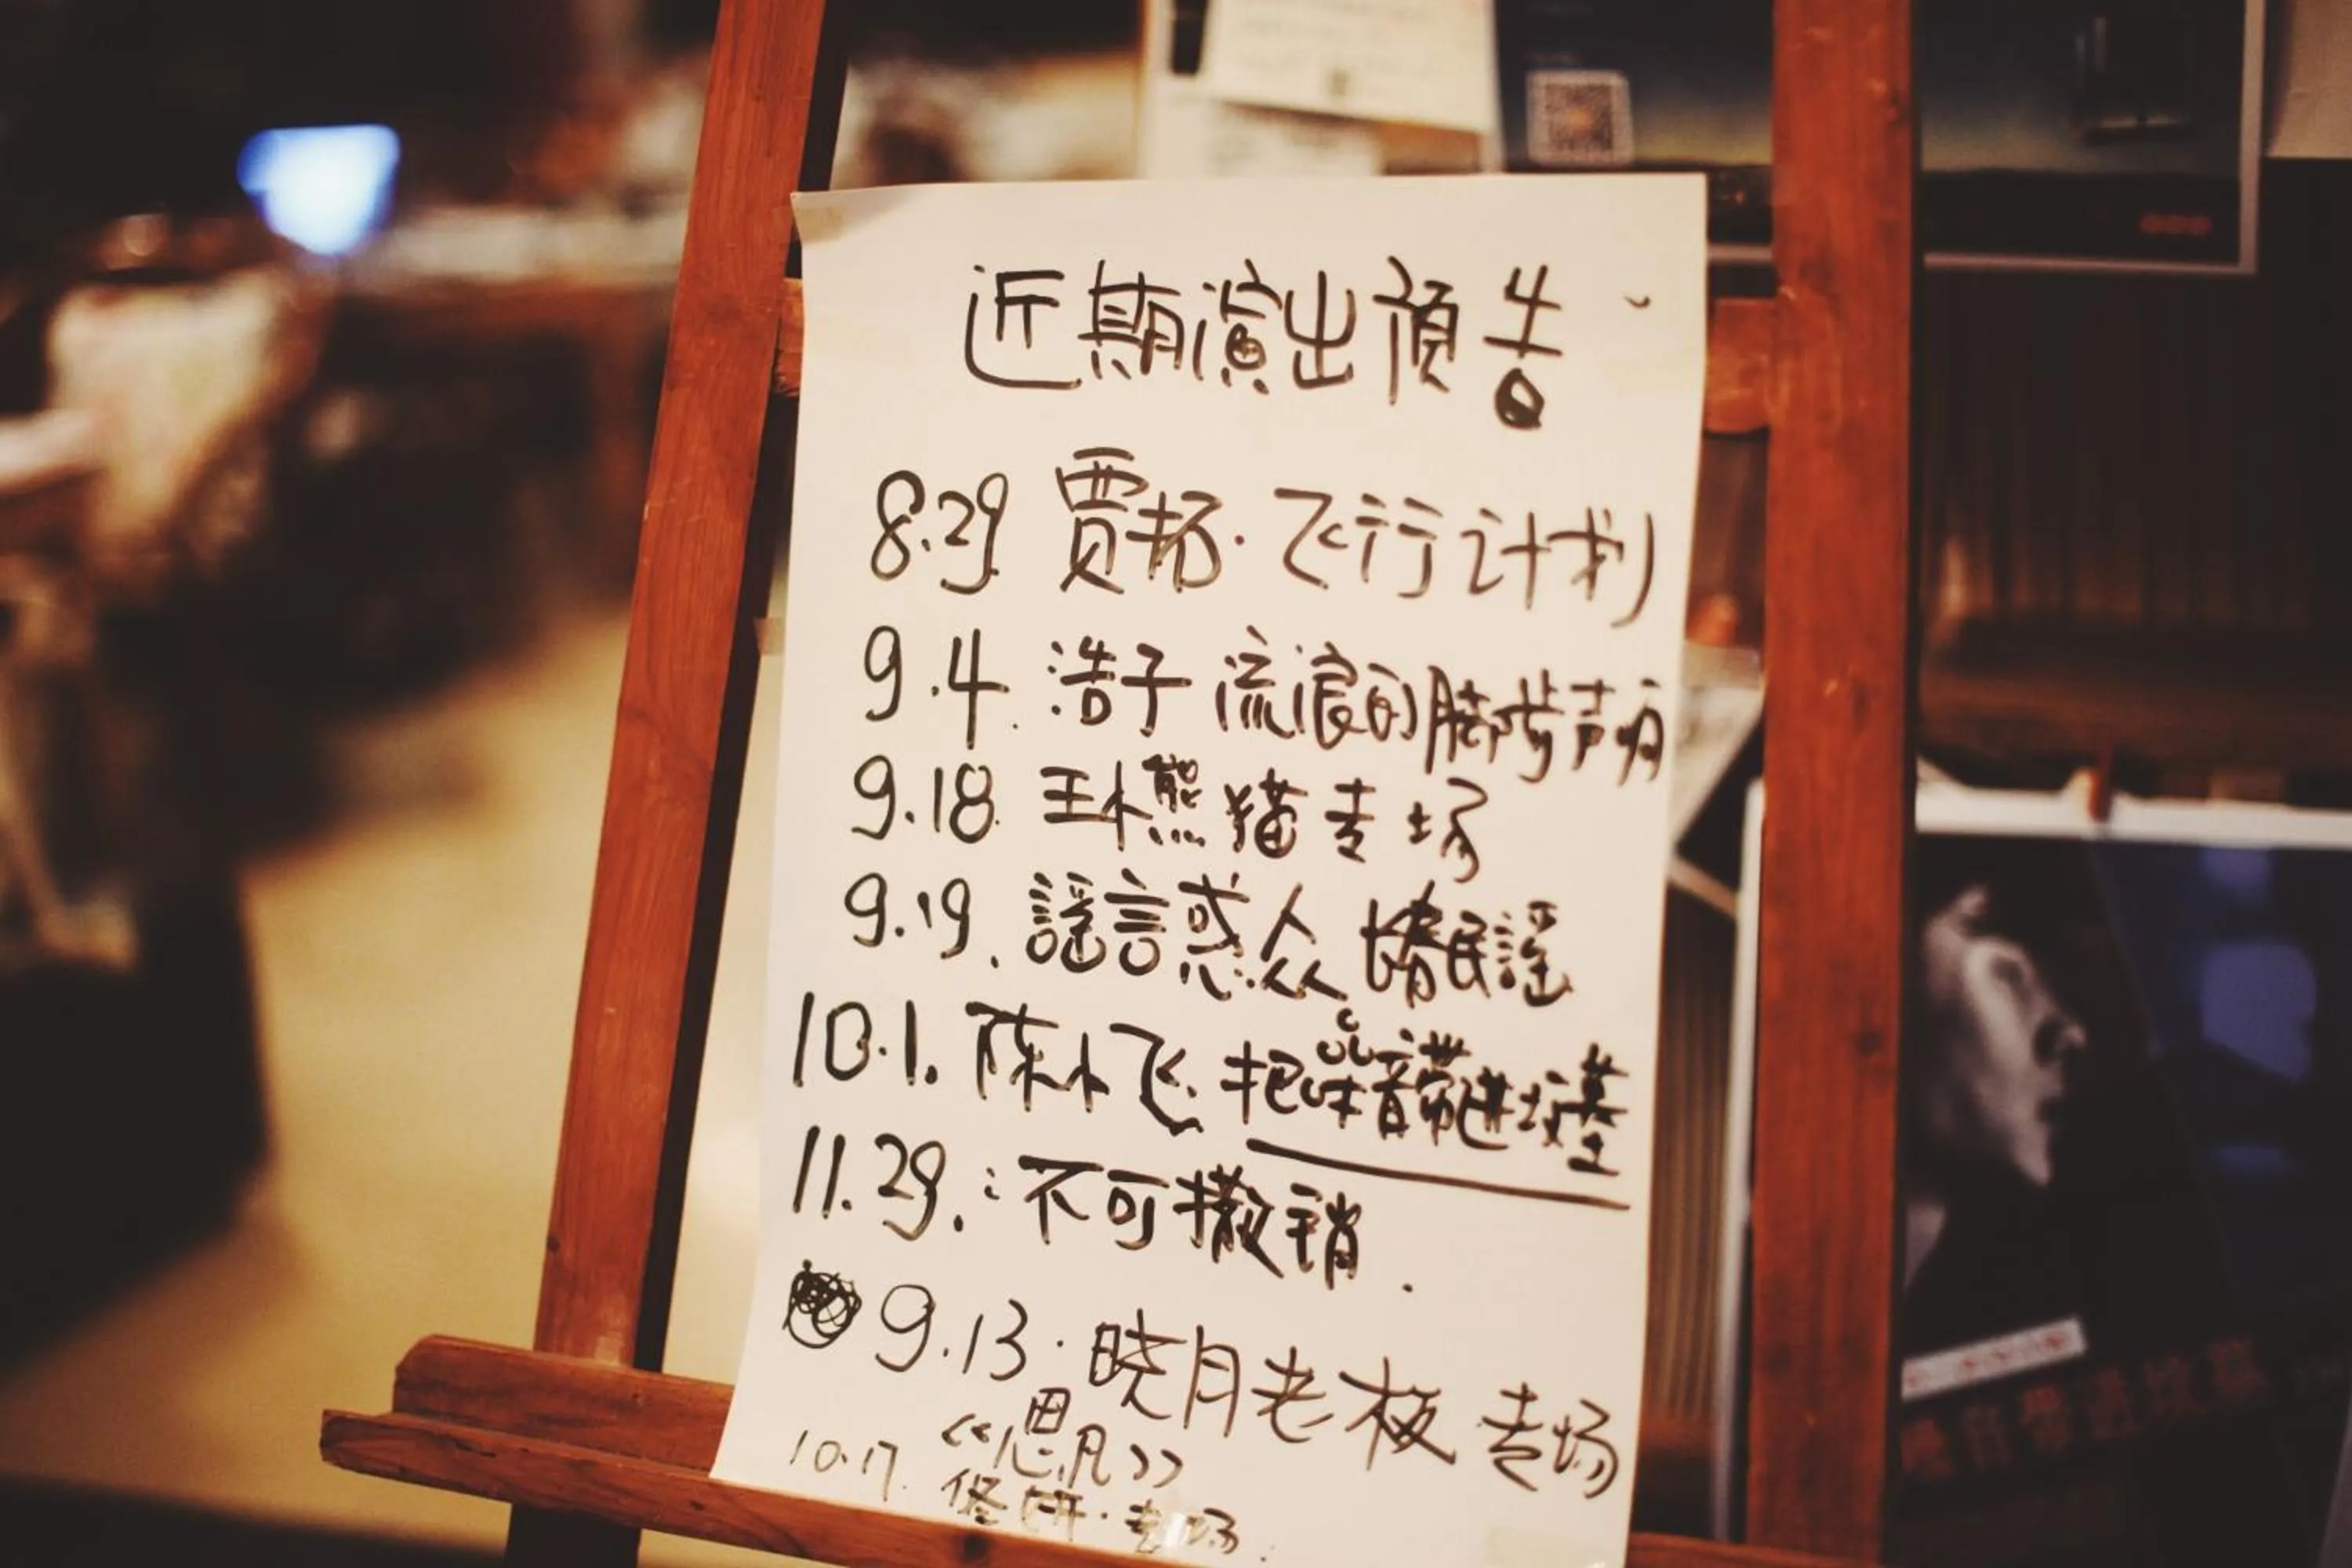 近期演出預告
8.29 贾拓·飞行计划
9.4. 浩子 流浪的脚步声有
9.18 王木熊猫专场
9.19. 謠言惑众 民謠
10.1. 陈小飞 把噪音带进坟墓
11.29.: 不可撤销.
9.13·晓月老板 专场
10.17. 《思凡》
佟妍·专场.